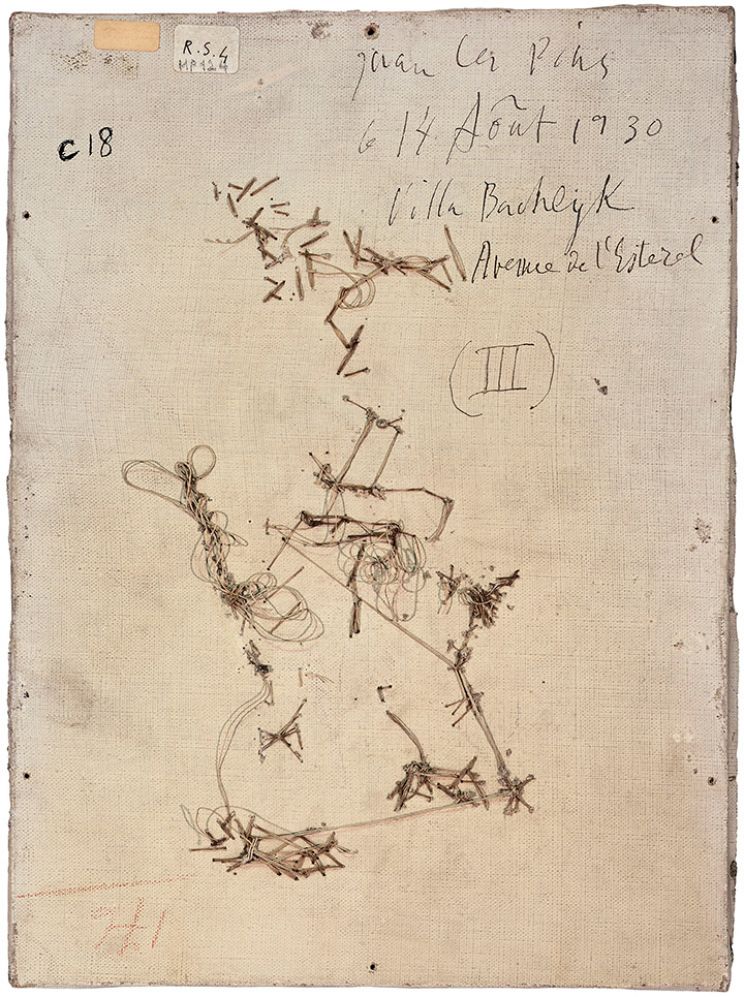 R.S.4
MP124
C18
Juan les Pins
le 14 Août 1930
Villa Bachlyk
Avenue de l'Esterel
(III)